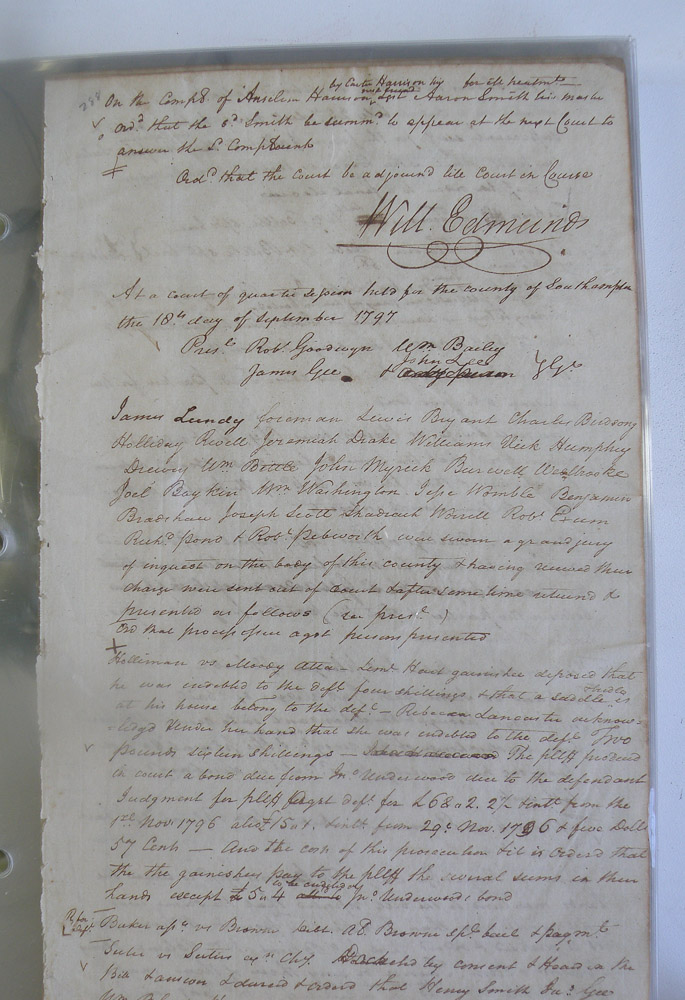 by Carter Harrison his next friend for ill treatmt
On the Compt. of Anselm Harrison agst Aaron Smith his master
Ord. that the sd. Smith be summd. to appear at the next Court to
answer the sd. Complaint
Ord. that the Court be adjournd till Court in Course
Will. Edmunds
At a court of quarter session held for the county of Southampton
the 18th day of September 1797
Prest. Robt. Goodwyn Wm Bailey
John Lee
James Gee & Gt.
James Lundy foreman Lewis Bryant Charles Birdsong
Holliday Revell Jeremiah Drake Williams Vick Humphry
Drewry Wm Bittle John Myrick Burwell Westbrooke
Joel Boykin Wm Washington Jesse Womble Benjamin
Bradshaw Joseph Scott Shadrach Worrell Robt. Exum
Richd. Pond & Robt. Pebworth were sworn a grand jury
of inquest on the body of this county & having received their
charge were sent out of court & after some time returnd &
presented as follows (see prest.)
Ord that process issue agst persons presented
Holliman vs Moody Atta - Lemt. Hart garnishee deposed that
he was indebted to the deft four shillings & that a saddle & bridle is
at his house belong to the deft. - Rebecca Lancaster acknow-
-ledgd under her hand that she was indebted to the deft. Two
pounds sixteen shillings - The pltff producd
in court a bond due from Jno. Underwood due to the defendant
Judgment for pltff agst deft. for £68.. 2. 2½ with intt. from the
1st Nov. 1796 also £15.. 1. intt. from 29th Nov. 1796 & five Dolls
57 Cents - And the costs of this prosecution & it is orderd that
the the garnishees pay to the pltff the several sums in their
hands except £5.. 4 to be credited on Jno. Underwoods bond
Baker asse. vs Browne Debt. A.E. Browne spl. bail & paymt.
Suter vs Suters exr. Chy. by consent & Heard on the
Bill & answer & decreed & orderd that Henry Smith Jas. Gee